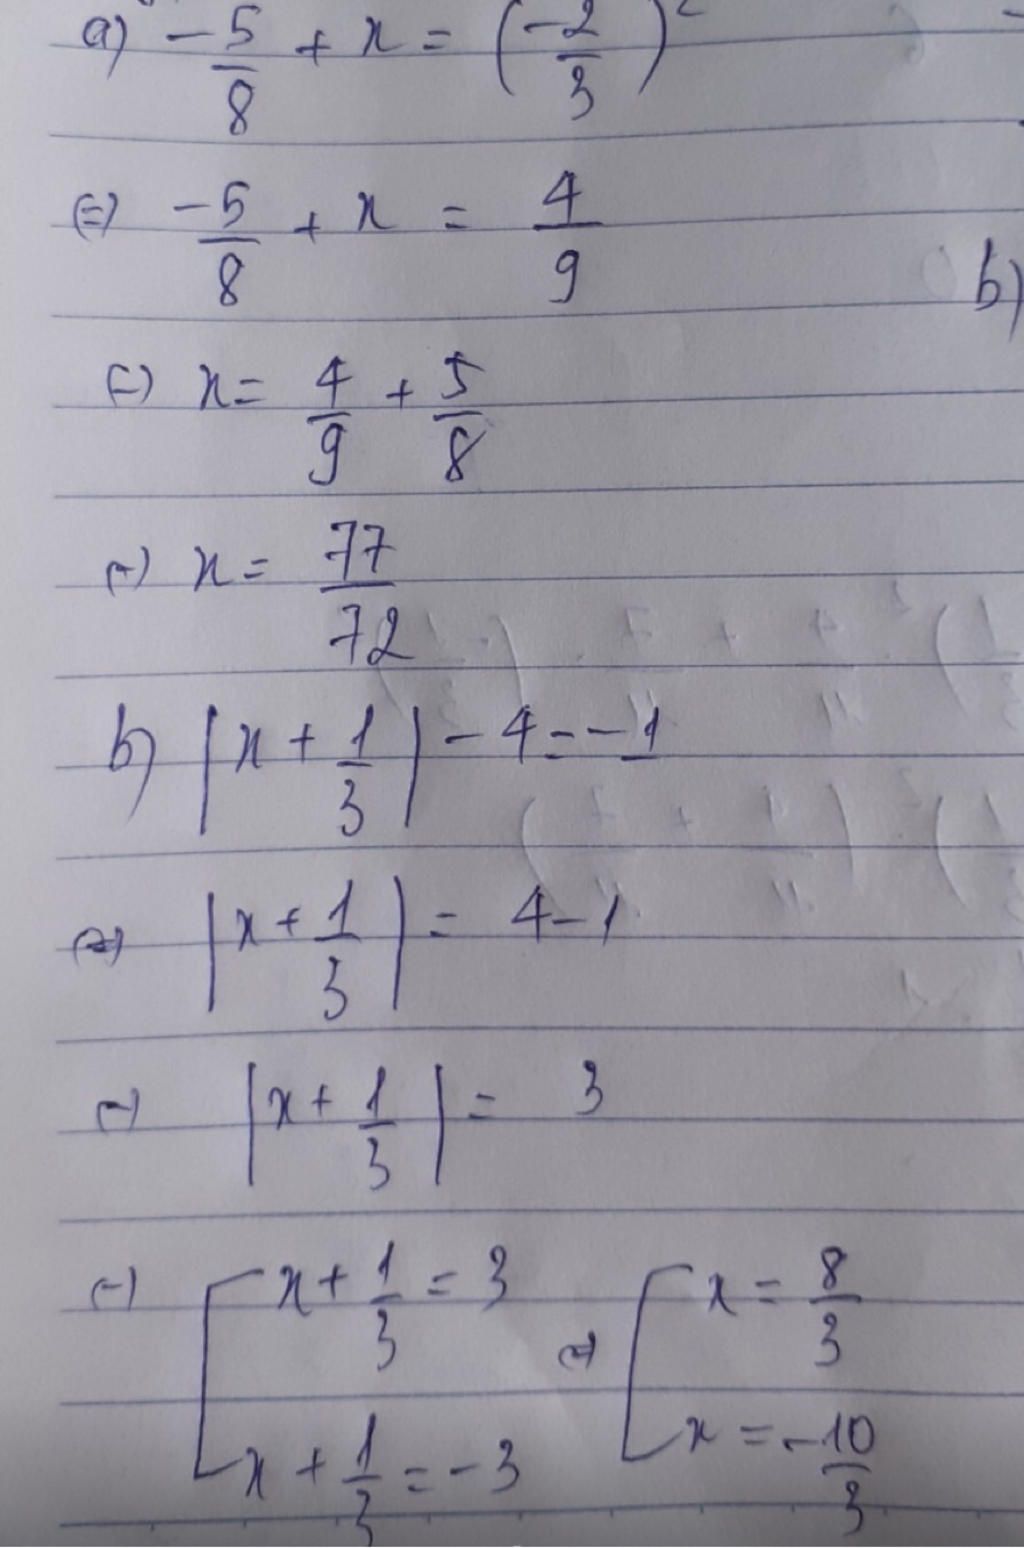 a) -5/8 + x = (-2/3)²
⇔ -5/8 + x = 4/9
b)
⇔ x = 4/9 + 5/8
⇔ x = 77/72
b) |x + 1/3| - 4 = -1
⇔ |x + 1/3| = 4 - 1
⇔ |x + 1/3| = 3
⇔ [x + 1/3 = 3 ⇔ [x = 8/3
x + 1/3 = -3 x = -10/3